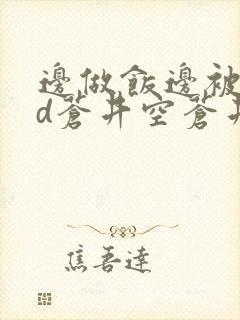 邊做飯邊被
d蒼井空蒼井
焦吾達